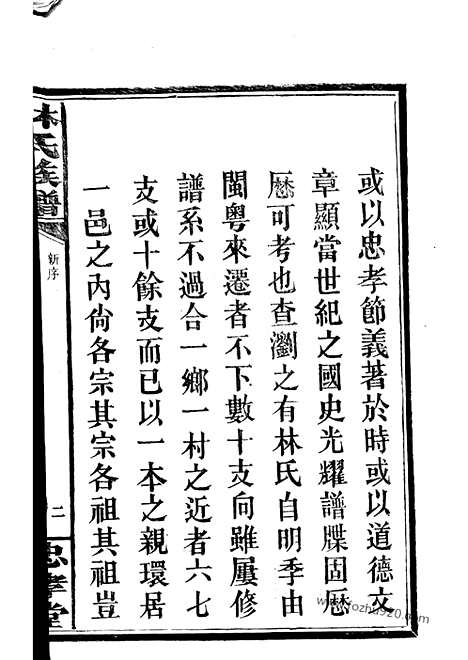 或以忠孝節義著於時或以道德文
章顯當世紀之國史光耀譜牒固厯
厯可考也查瀏之有林氏自明季由
閩粵來遷者不下數十支向雖屢修
譜系不過合一鄉一村之近者六七
支或十餘支而已以一本之親環居
一邑之內尙各宗其宗各祖其祖豈
林氏族譜
新序
二
忠孝堂
www.fozhu920.com